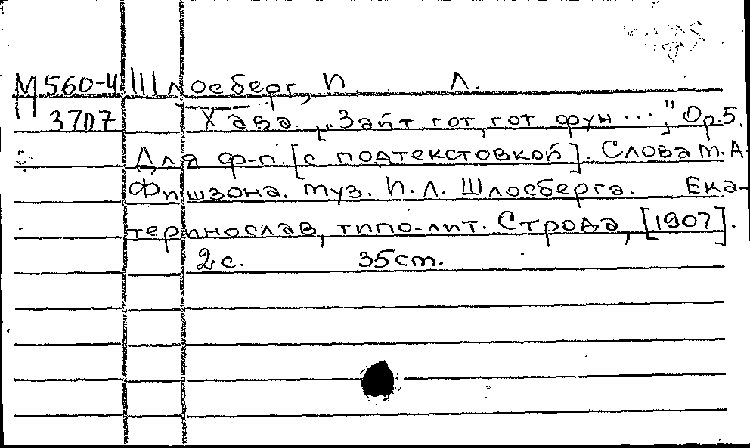 М560-4 Шлосберг, И Л.
3707 Хава „Зайт гот, гот фун ...", Ор.5.
Для ф-п. [с подтекстовкой]. Слова М. А.
Фишзона. Муз. И. Л. Шлосберга. Ека-
теринослав, типо-лит. Строда, [1907].
2 с. 35 cm.